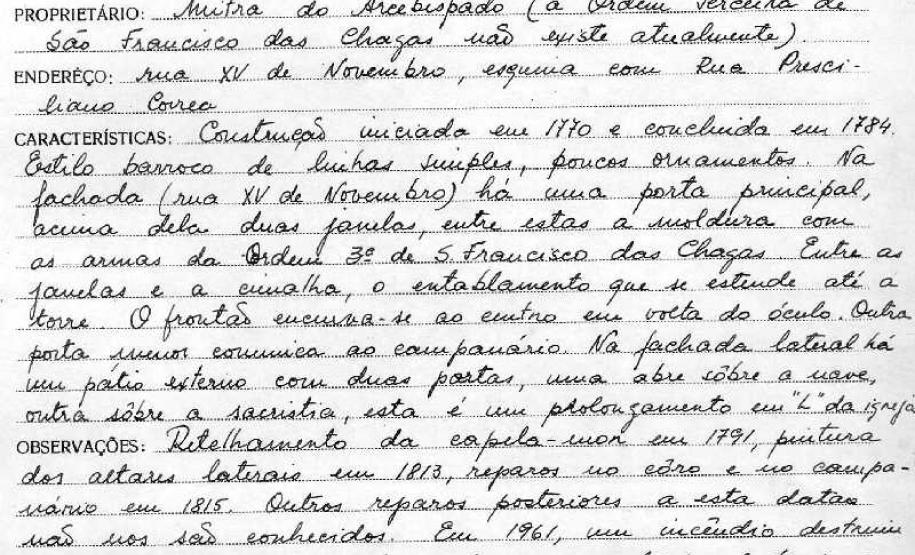 PROPRIETÁRIO: Mitra do Arcebispado (a Ordem Terceira de
São Francisco das Chagas não existe atualmente).
ENDERÊÇO: rua XV de Novembro, esquina com Rua Presci-
liano Correa
CARACTERÍSTICAS: Construção iniciada em 1770 e concluida em 1784.
Estilo barroco de linhas simples, poucos ornamentos. Na
fachada (rua XV de Novembro) há uma porta principal,
acima dela duas janelas, entre estas a moldura com
as armas da Ordem 3ª de S. Francisco das Chagas. Entre as
janelas e a cimalha, o entablamento que se estende até a
torre. O frontão encurva-se ao centro em volta do óculo. Outra
porta menor comunica ao campanário. Na fachada lateral há
um pátio externo com duas portas, uma abre sôbre a nave,
outra sôbre a sacristia, esta é um prolongamento em "L" da igreja
OBSERVAÇÕES: Retelhamento da capela-mor em 1791, pintura
dos altares laterais em 1813, reparos no côro e no campa-
nário em 1815. Outros reparos posteriores a esta data
não nos são conhecidos. Em 1961, um incêndio destruiu